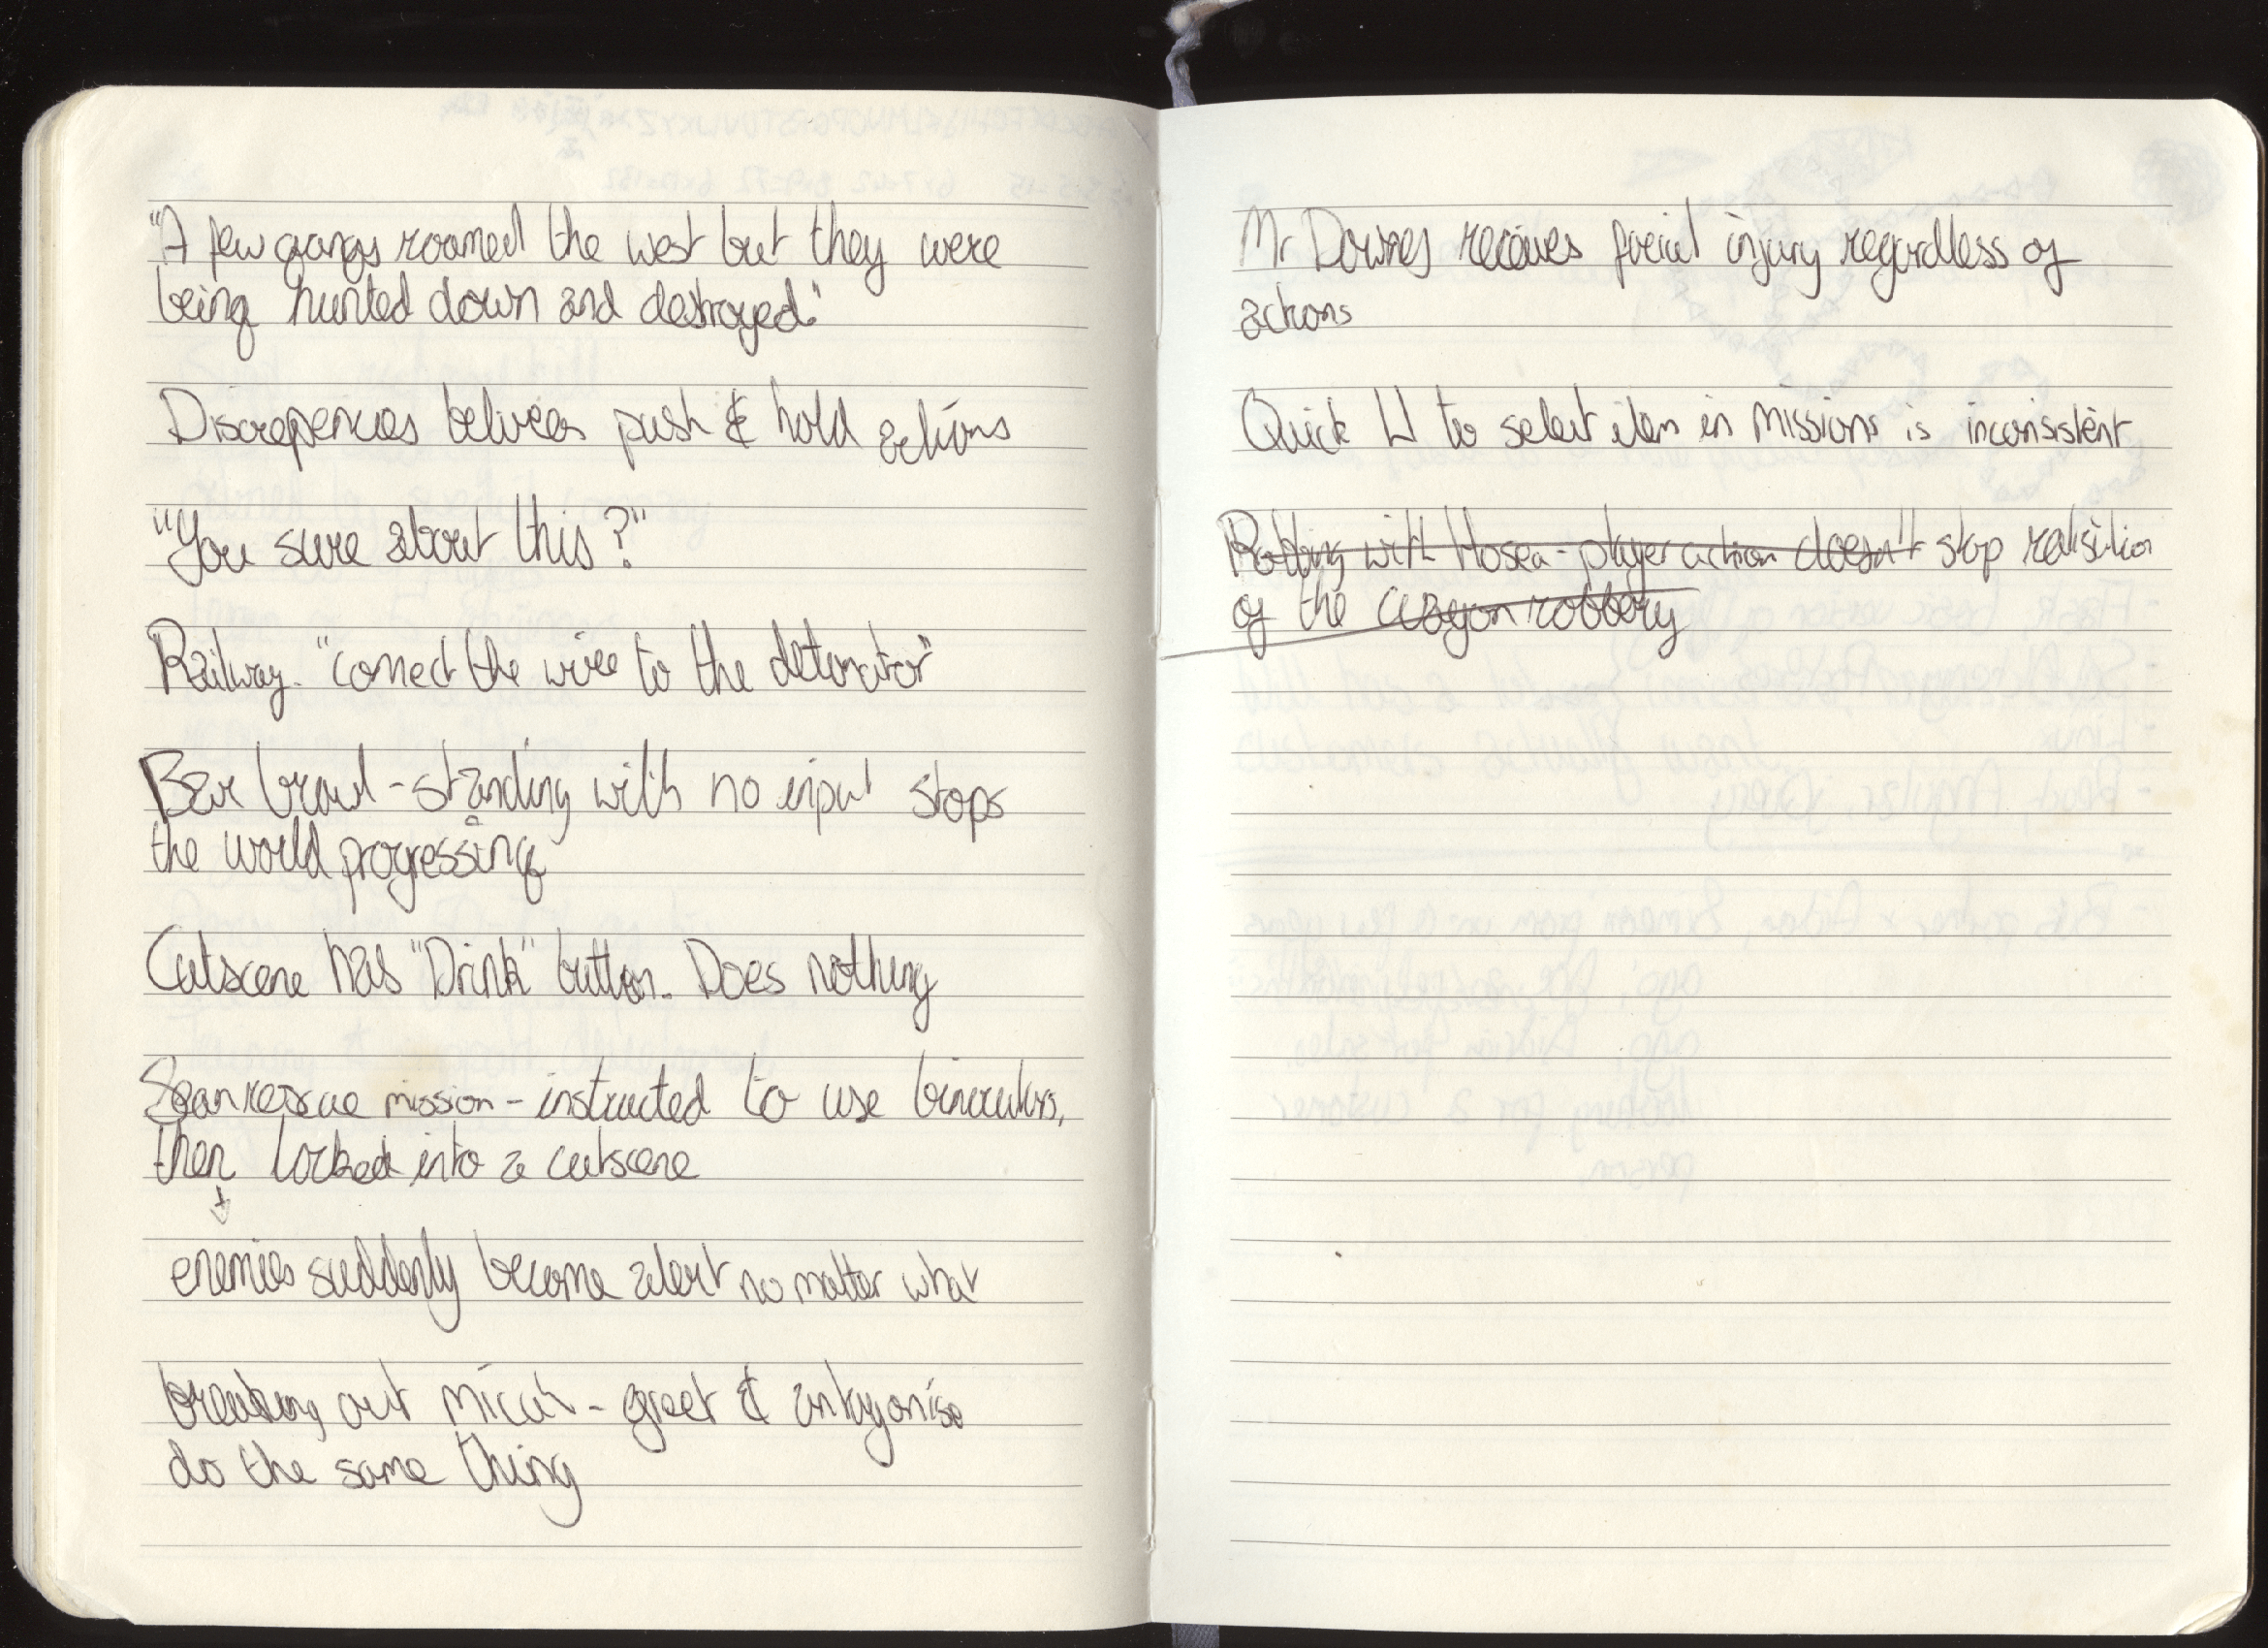 "A few gangs roamed the west but they were
being hunted down and destroyed."
Discrepencies between push & hold actions
"You sure about this?"
Railway. "connect the wire to the detonator"
Bar brawl - standing with no input stops
the world progressing
Cutscene has "Drink" button. Does nothing
Sean rescue mission - instructed to use binoculars,
then locked into a cutscene
enemies suddenly become alert no matter what
breaking out Micah - greet & antagonise
do the same thing
Mr Downes receives facial injury regardless of
actions
Quick L1 to select item in missions is inconsistent
with Hosea - player action doesn't stop
of the wagon robbery